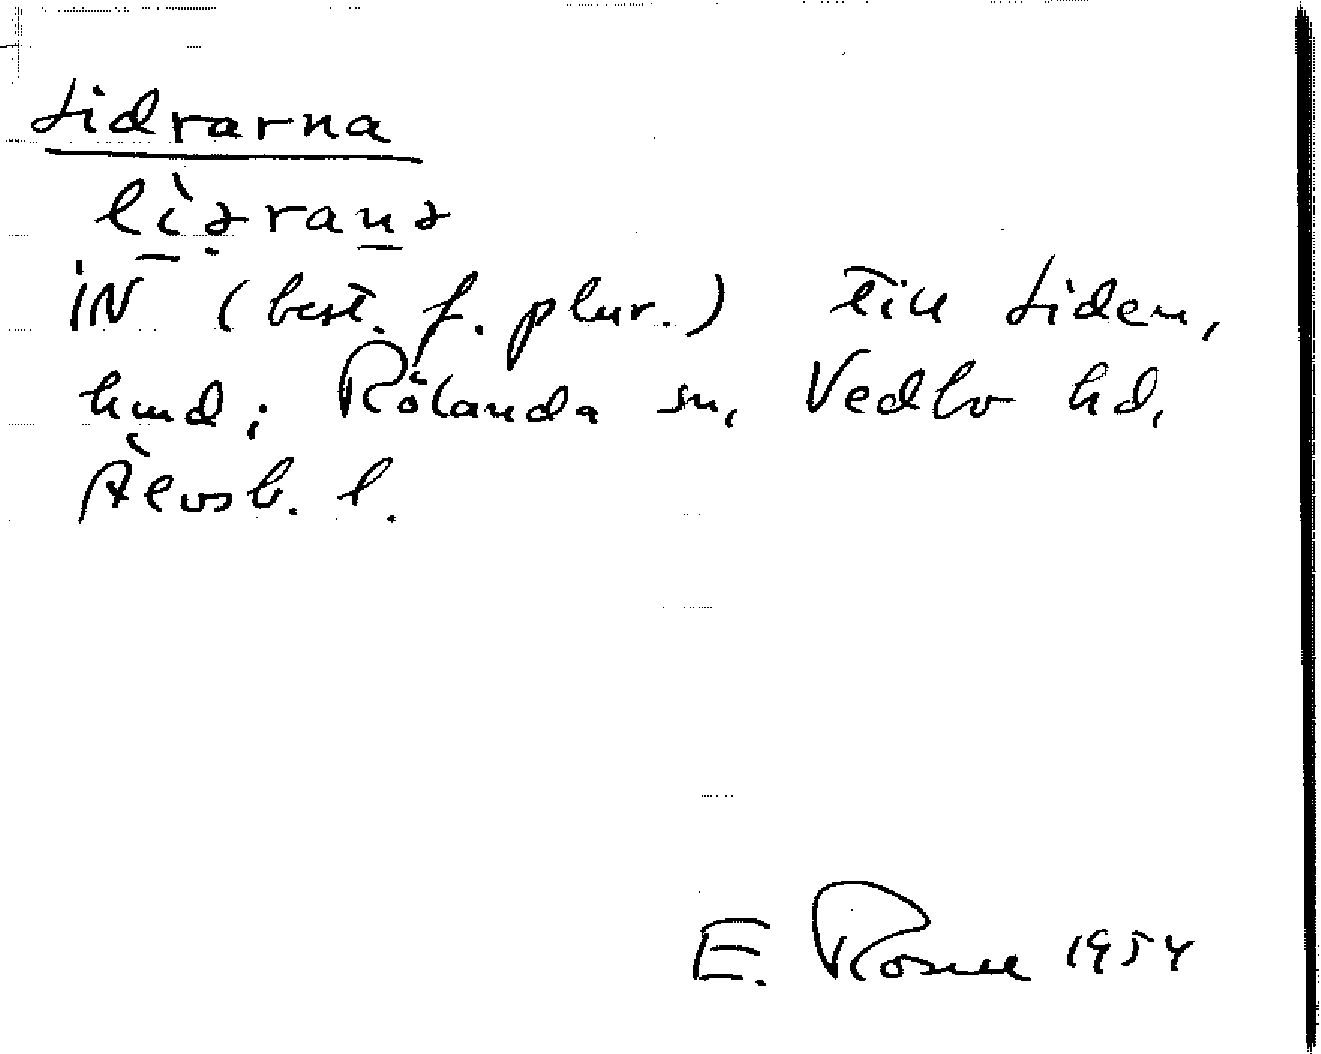 Lidrarna
lìɜranɜ
iN (best. f. plur.) till Liden,
hmd; Rölanda sn, Vedbo hd,
Älvsb. l.
E. Rosell 1954